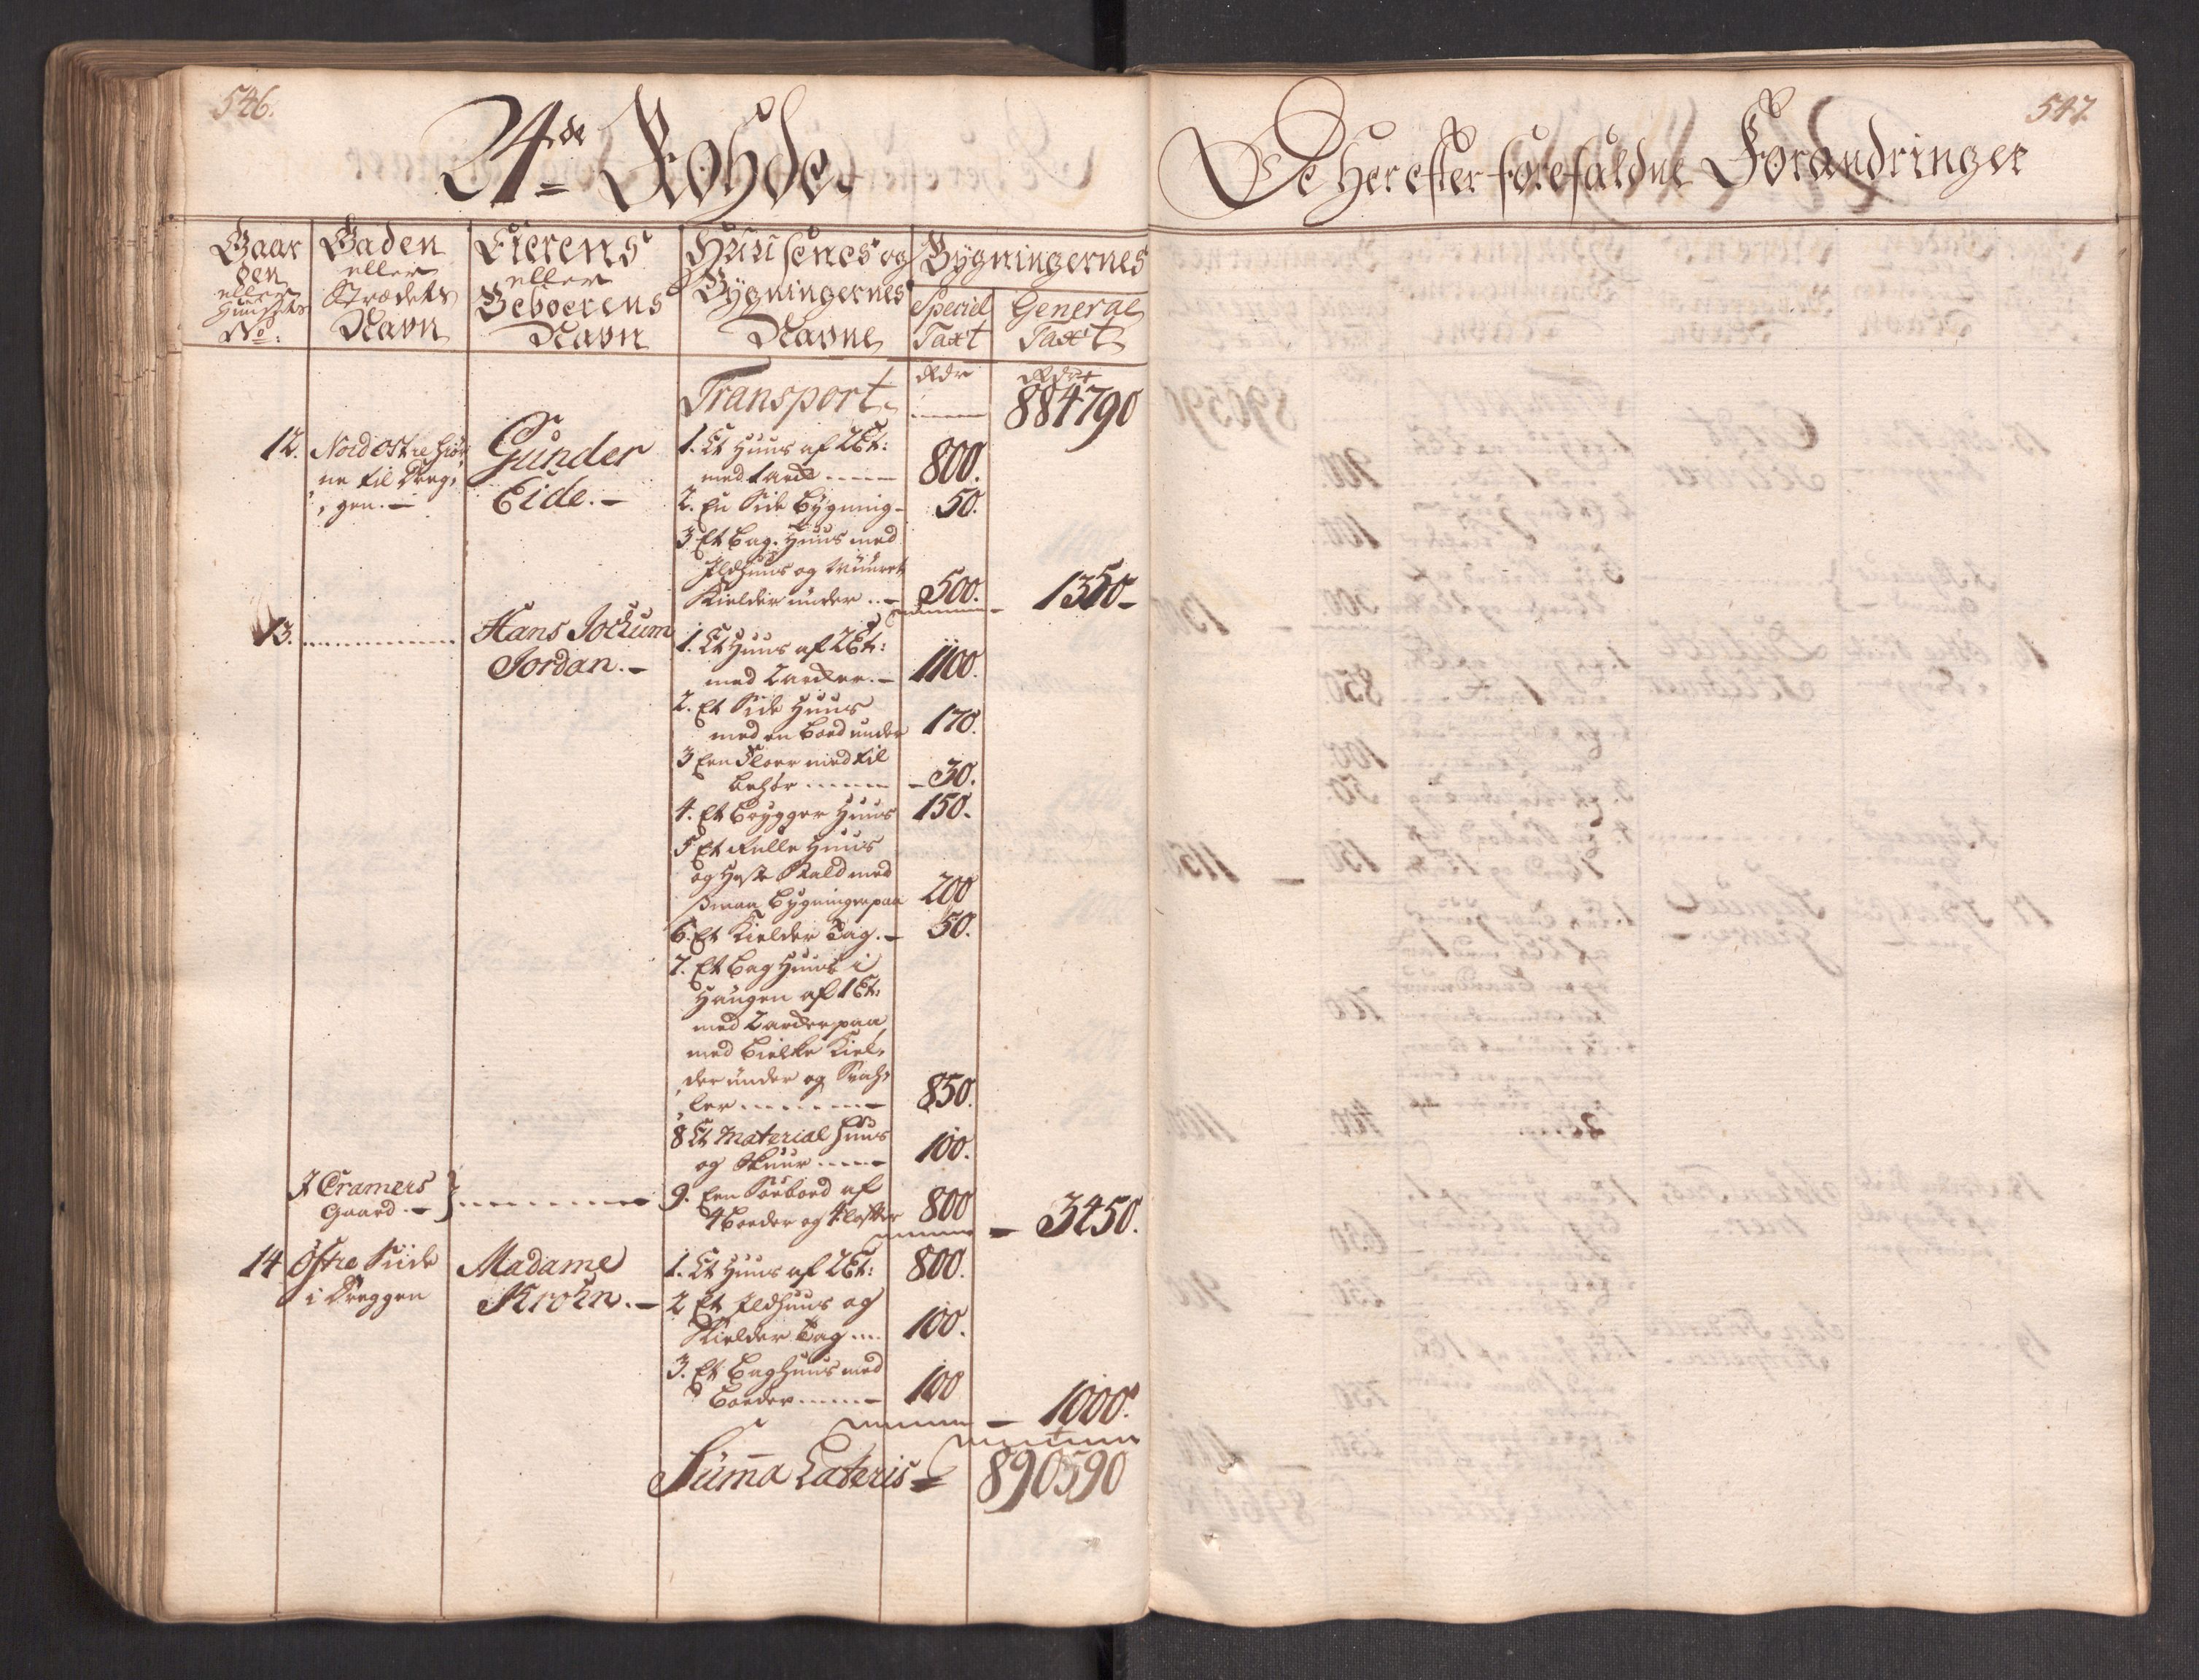 546.
24de Rohde.
Gaar
den
eller
Huusets
No:
Gaden
eller
Strædets
Navn
Eierens
eller
Beboerens
Navn
Huusenes og
Bygningernes
Navne
Bygningernes
Speciel
Taxt
General
Taxt
Rdr
Rdr
Transport ------ 884790
12. Nordostre Hiør
ne til Dreg,
, gen. —
Gunder
Eide. —
1. Et Huus af 2 Et:
med 1 arck ------ 800.
2. En Side Bygning - 50.
3 Et Bag. Huus med
Ildhuus og Muuret
Kielder under .. - 500. — 1350 -
13. ------------ Hans Jochum
Jordan. —
1. Et Huus af 2 Et:
med 2 arcker. — 1100.
2. Et Side Huus
med en Boed under 170.
3 Een Floer med til
behør ------ - 30.
4. Et Brygger Huus 150.
5 Et Rulle Huus
og Heste Stald med
smaa Bygninger paa 200
6. Et Kielder Tag. — 50.
7. Et Bag Huus i
Haugen af 1 Et:
med 2 arcker paa
med Bielke Kiel,
,der under og Svah,
,ler ------ 850.
8 Et Material Huus
og Skuur ----- 100.
J Cramers
Gaard. — } ----------
9. Een Søeboed af
4 Boeder og 4 Lofter 800 — 3450.
14 Østre Siide
i Dreggen
Madame
Krohn. —
1. Et Huus af 2 Et: 800.
2 Et Ildhuus og
Kielder Tag ... 100.
3. Et Baghuus med
Boeder ------ 100
— 1000.
Suma Lateris = 890590
547.
De Her efter forefaldne Forandringer